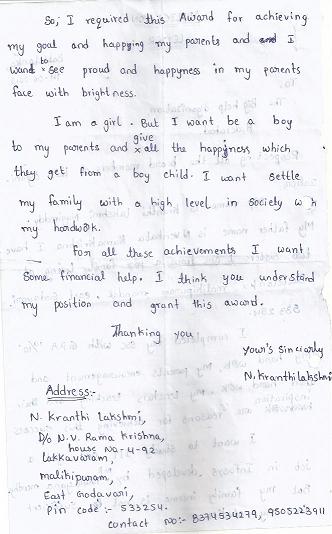 So, I required this Award for achieving
my goal and happying my parents and and I
want to see proud and happyness in my parents
face with brightness.
I am a girl. But I want be a boy
to my parents and give all the happiness which
they get from a boy child. I want settle
my family with a high level in society w h
my hardwok.
For all these achievements I want
Some financial help. I think you understand
my position and grant this award.
Thanking you
your's sinciarly
N. Kranthi Lakshmi
Address:-
N. Kranthi Lakshmi,
D/o N.V. Rama Krishna,
house No-4-92
Lakkavaram,
malikipuram,
East Godavari,
Pin code:- 533254.
contact no:- 8374534279, 9505223911